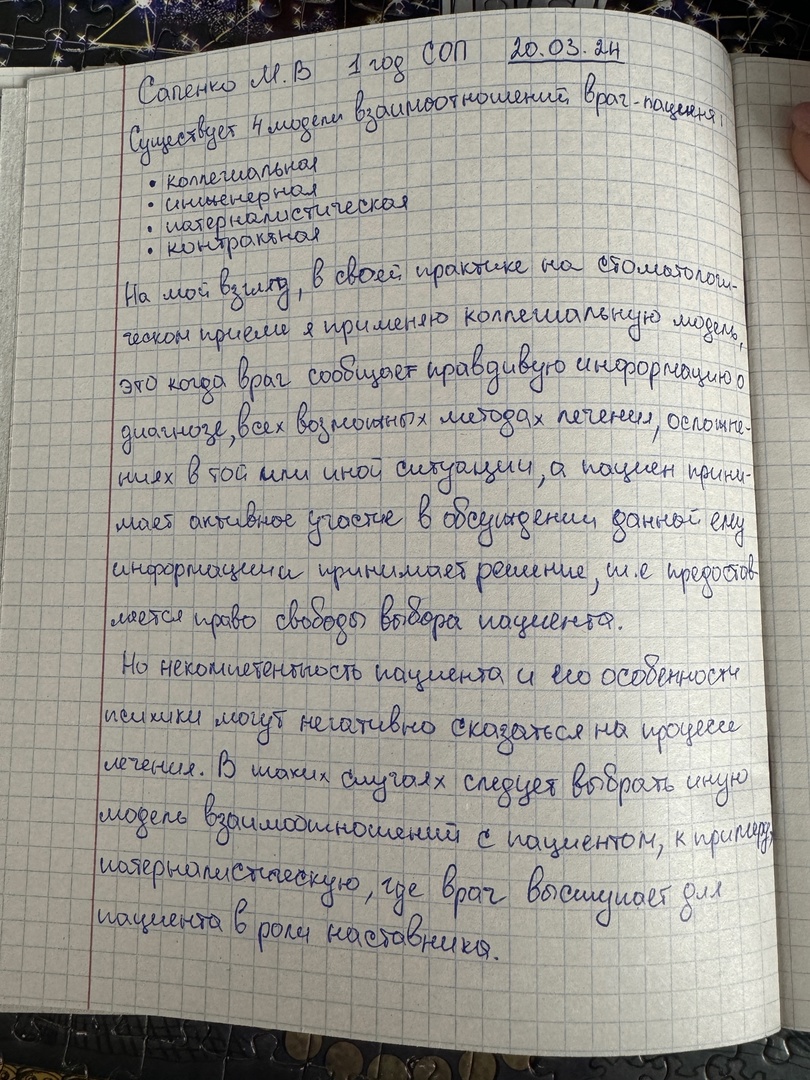 Сапенко М.В 1 год СОП 20.03.24
Существует 4 модели взаимоотношений врач-пациент:
• коллегиальная
• инженерная
• патерналистическая
• контрактная
На мой взгляд, в своей практике на стоматологи-
ческом приеме я применяю коллегиальную модель,
это когда врач сообщает правдивую информацию о
диагнозе, всех возможных методах лечения, осложне-
ниях в той или иной ситуации, а пациен прини-
мает активное участие в обсуждении данной ему
информации и принимает решение, т.е предостав-
ляется право свободы выбора пациента.
Но некомпетентность пациента и его особенности
психики могут негативно сказаться на процессе
лечения. В таких случаях следует выбрать иную
модель взаимоотношений с пациентом, к примеру,
патерналистическую, где врач выступает для
пациента в роли наставника.